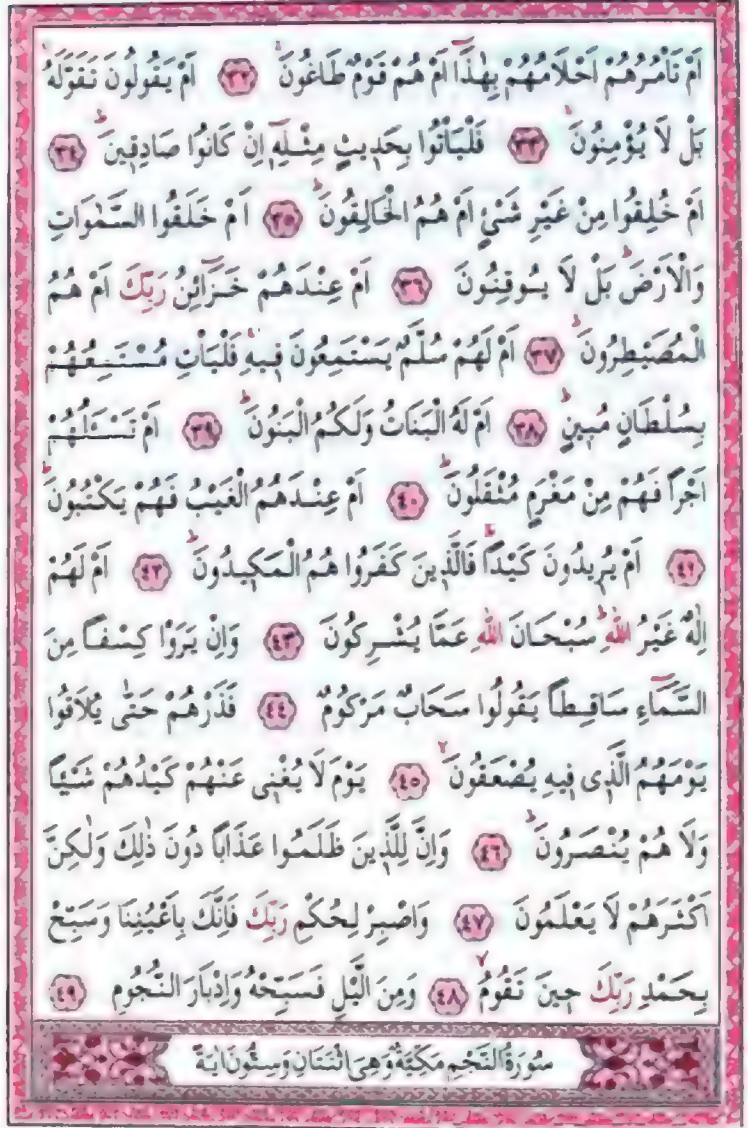 اَمْ تَأْمُرُهُمْ اَحْلَامُهُمْ بِهٰذَٓا اَمْ هُمْ قَوْمٌ طَاغُونَۚ ﴿٣٢﴾ اَمْ يَقُولُونَ تَقَوَّلَهُۚ
بَلْ لَا يُؤْمِنُونَۚ ﴿٣٣﴾ فَلْيَأْتُوا بِحَدٖيثٍ مِثْلِهٖٓ اِنْ كَانُوا صَادِقٖينَؕ ﴿٣٤﴾
اَمْ خُلِقُوا مِنْ غَيْرِ شَيْءٍ اَمْ هُمُ الْخَالِقُونَؕ ﴿٣٥﴾ اَمْ خَلَقُوا السَّمٰوَاتِ
وَالْاَرْضَۚ بَلْ لَا يُوقِنُونَؕ ﴿٣٦﴾ اَمْ عِنْدَهُمْ خَزَٓائِنُ رَبِّكَ اَمْ هُمُ
الْمُصَيْطِرُونَؕ ﴿٣٧﴾ اَمْ لَهُمْ سُلَّمٌ يَسْتَمِعُونَ فٖيهِۚ فَلْيَأْتِ مُسْتَمِعُهُمْ
بِسُلْطَانٍ مُبٖينٍؕ ﴿٣٨﴾ اَمْ لَهُ الْبَنَاتُ وَلَكُمُ الْبَنُونَؕ ﴿٣٩﴾ اَمْ تَسْـَٔلُهُمْ
اَجْرًا فَهُمْ مِنْ مَغْرَمٍ مُثْقَلُونَؕ ﴿٤٠﴾ اَمْ عِنْدَهُمُ الْغَيْبُ فَهُمْ يَكْتُبُونَؕ
﴿٤١﴾ اَمْ يُرٖيدُونَ كَيْدًاؕ فَالَّذٖينَ كَفَرُوا هُمُ الْمَكٖيدُونَؕ ﴿٤٢﴾ اَمْ لَهُمْ
اِلٰهٌ غَيْرُ اللّٰهِؕ سُبْحَانَ اللّٰهِ عَمَّا يُشْرِكُونَ ﴿٤٣﴾ وَاِنْ يَرَوْا كِسْفًا مِنَ
السَّمَٓاءِ سَاقِطًا يَقُولُوا سَحَابٌ مَرْكُومٌ ﴿٤٤﴾ فَذَرْهُمْ حَتّٰى يُلَاقُوا
يَوْمَهُمُ الَّذٖى فٖيهِ يُصْعَقُونَۙ ﴿٤٥﴾ يَوْمَ لَا يُغْنٖى عَنْهُمْ كَيْدُهُمْ شَيْـًٔا
وَلَا هُمْ يُنْصَرُونَؕ ﴿٤٦﴾ وَاِنَّ لِلَّذٖينَ ظَلَمُوا عَذَابًا دُونَ ذٰلِكَ وَلٰكِنَّ
اَكْثَرَهُمْ لَا يَعْلَمُونَ ﴿٤٧﴾ وَاصْبِرْ لِحُكْمِ رَبِّكَ فَاِنَّكَ بِاَعْيُنِنَا وَسَبِّحْ
بِحَمْدِ رَبِّكَ حٖينَ تَقُومُۙ ﴿٤٨﴾ وَمِنَ الَّيْلِ فَسَبِّحْهُ وَاِدْبَارَ النُّجُومِ ﴿٤٩﴾
سُورَةُ النَّجْمِ مَكِّيَّةٌ وَهِىَ اثْنَتَانِ وَسِتُّونَ اٰيَةً